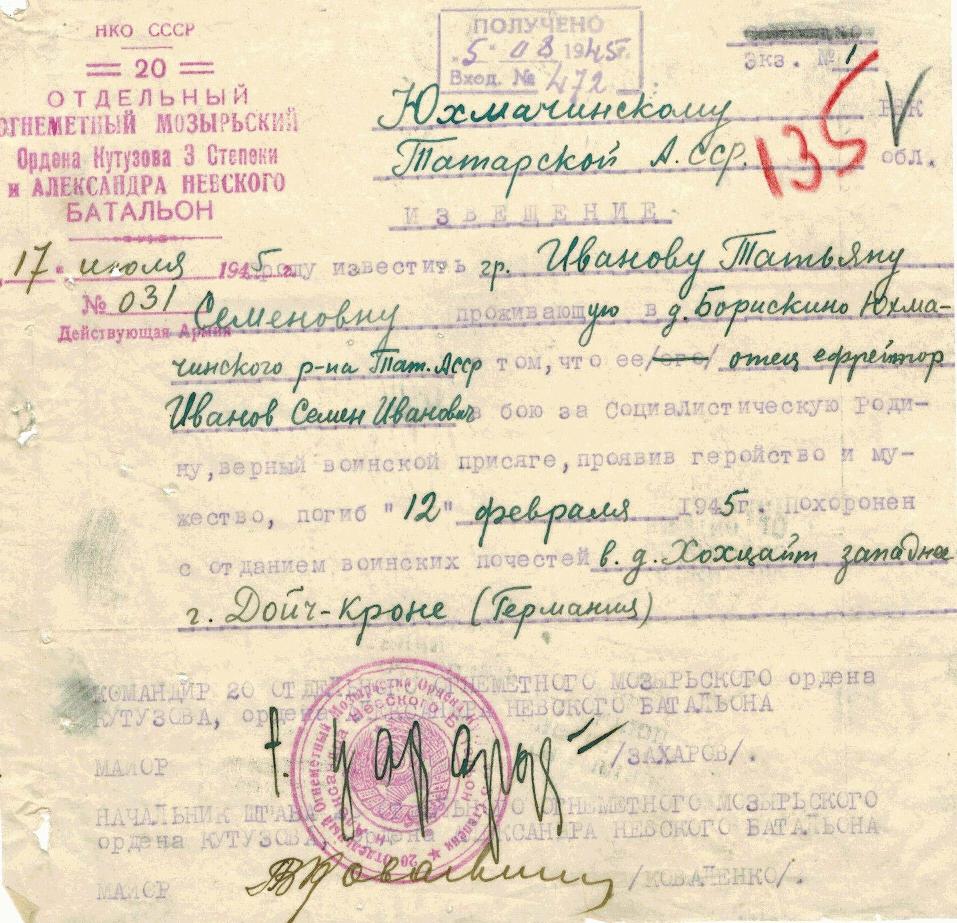 НКО СССР
20
ОТДЕЛЬНЫЙ
ОГНЕМЕТНЫЙ МОЗЫРЬСКИЙ
Ордена Кутузова 3 Степени
и АЛЕКСАНДРА НЕВСКОГО
БАТАЛЬОН
„17" июля 1945 г.
№ 031
Действующая Армия
ПОЛУЧЕНО
„5" 08 1945г.
Вход. № 472
Экз. № 1
135
Юхмачинскому РВК
Татарской А.ССР. обл.
ИЗВЕЩЕНИЕ
Прошу известить гр. Иванову Татьяну
Семеновну проживающую в д. Борискино Юхма-
чинского р-на Тат. АССР том, что ее/его/ отец ефрейтор
Иванов Семен Иванович в бою за Социалистическую Роди-
ну, верный воинской присяге, проявив геройство и му-
жество, погиб "12" февраля 1945г. Похоронен
с отданием воинских почестей в. д. Хохцайт западнее
г. Дойч-Кроне (Германия)
КОМАНДИР 20 ОТДЕЛЬНОГО ОГНЕМЕТНОГО МОЗЫРЬСКОГО ордена
КУТУЗОВА, ордена АЛЕКСАНДРА НЕВСКОГО БАТАЛЬОНА
МАЙОР /ЗАХАРОВ/.
НАЧАЛЬНИК ШТАБА ОТДЕЛЬНОГО ОГНЕМЕТНОГО МОЗЫРЬСКОГО
ордена КУТУЗОВА, ордена АЛЕКСАНДРА НЕВСКОГО БАТАЛЬОНА
МАЙОР /КОВАЛЕНКО/.